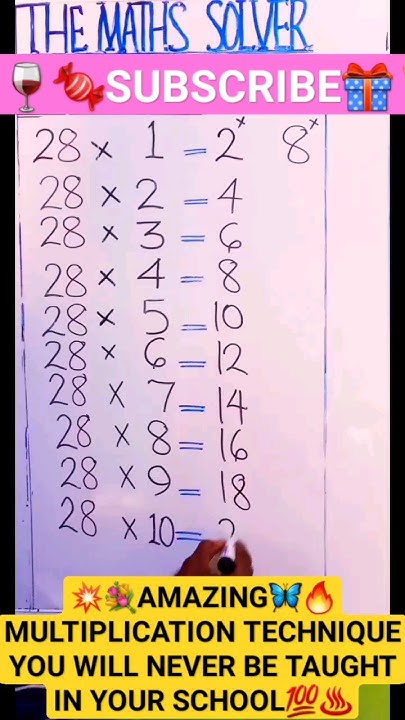 THE MATHS SOLVER
🍷🍬SUBSCRIBE🎁
28 × 1 = 2ˣ 8ˣ
28 × 2 = 4
28 × 3 = 6
28 × 4 = 8
28 × 5 = 10
28 × 6 = 12
28 × 7 = 14
28 × 8 = 16
28 × 9 = 18
28 × 10 = 2
💥💐AMAZING🦋🔥
MULTIPLICATION TECHNIQUE
YOU WILL NEVER BE TAUGHT
IN YOUR SCHOOL💯♨️